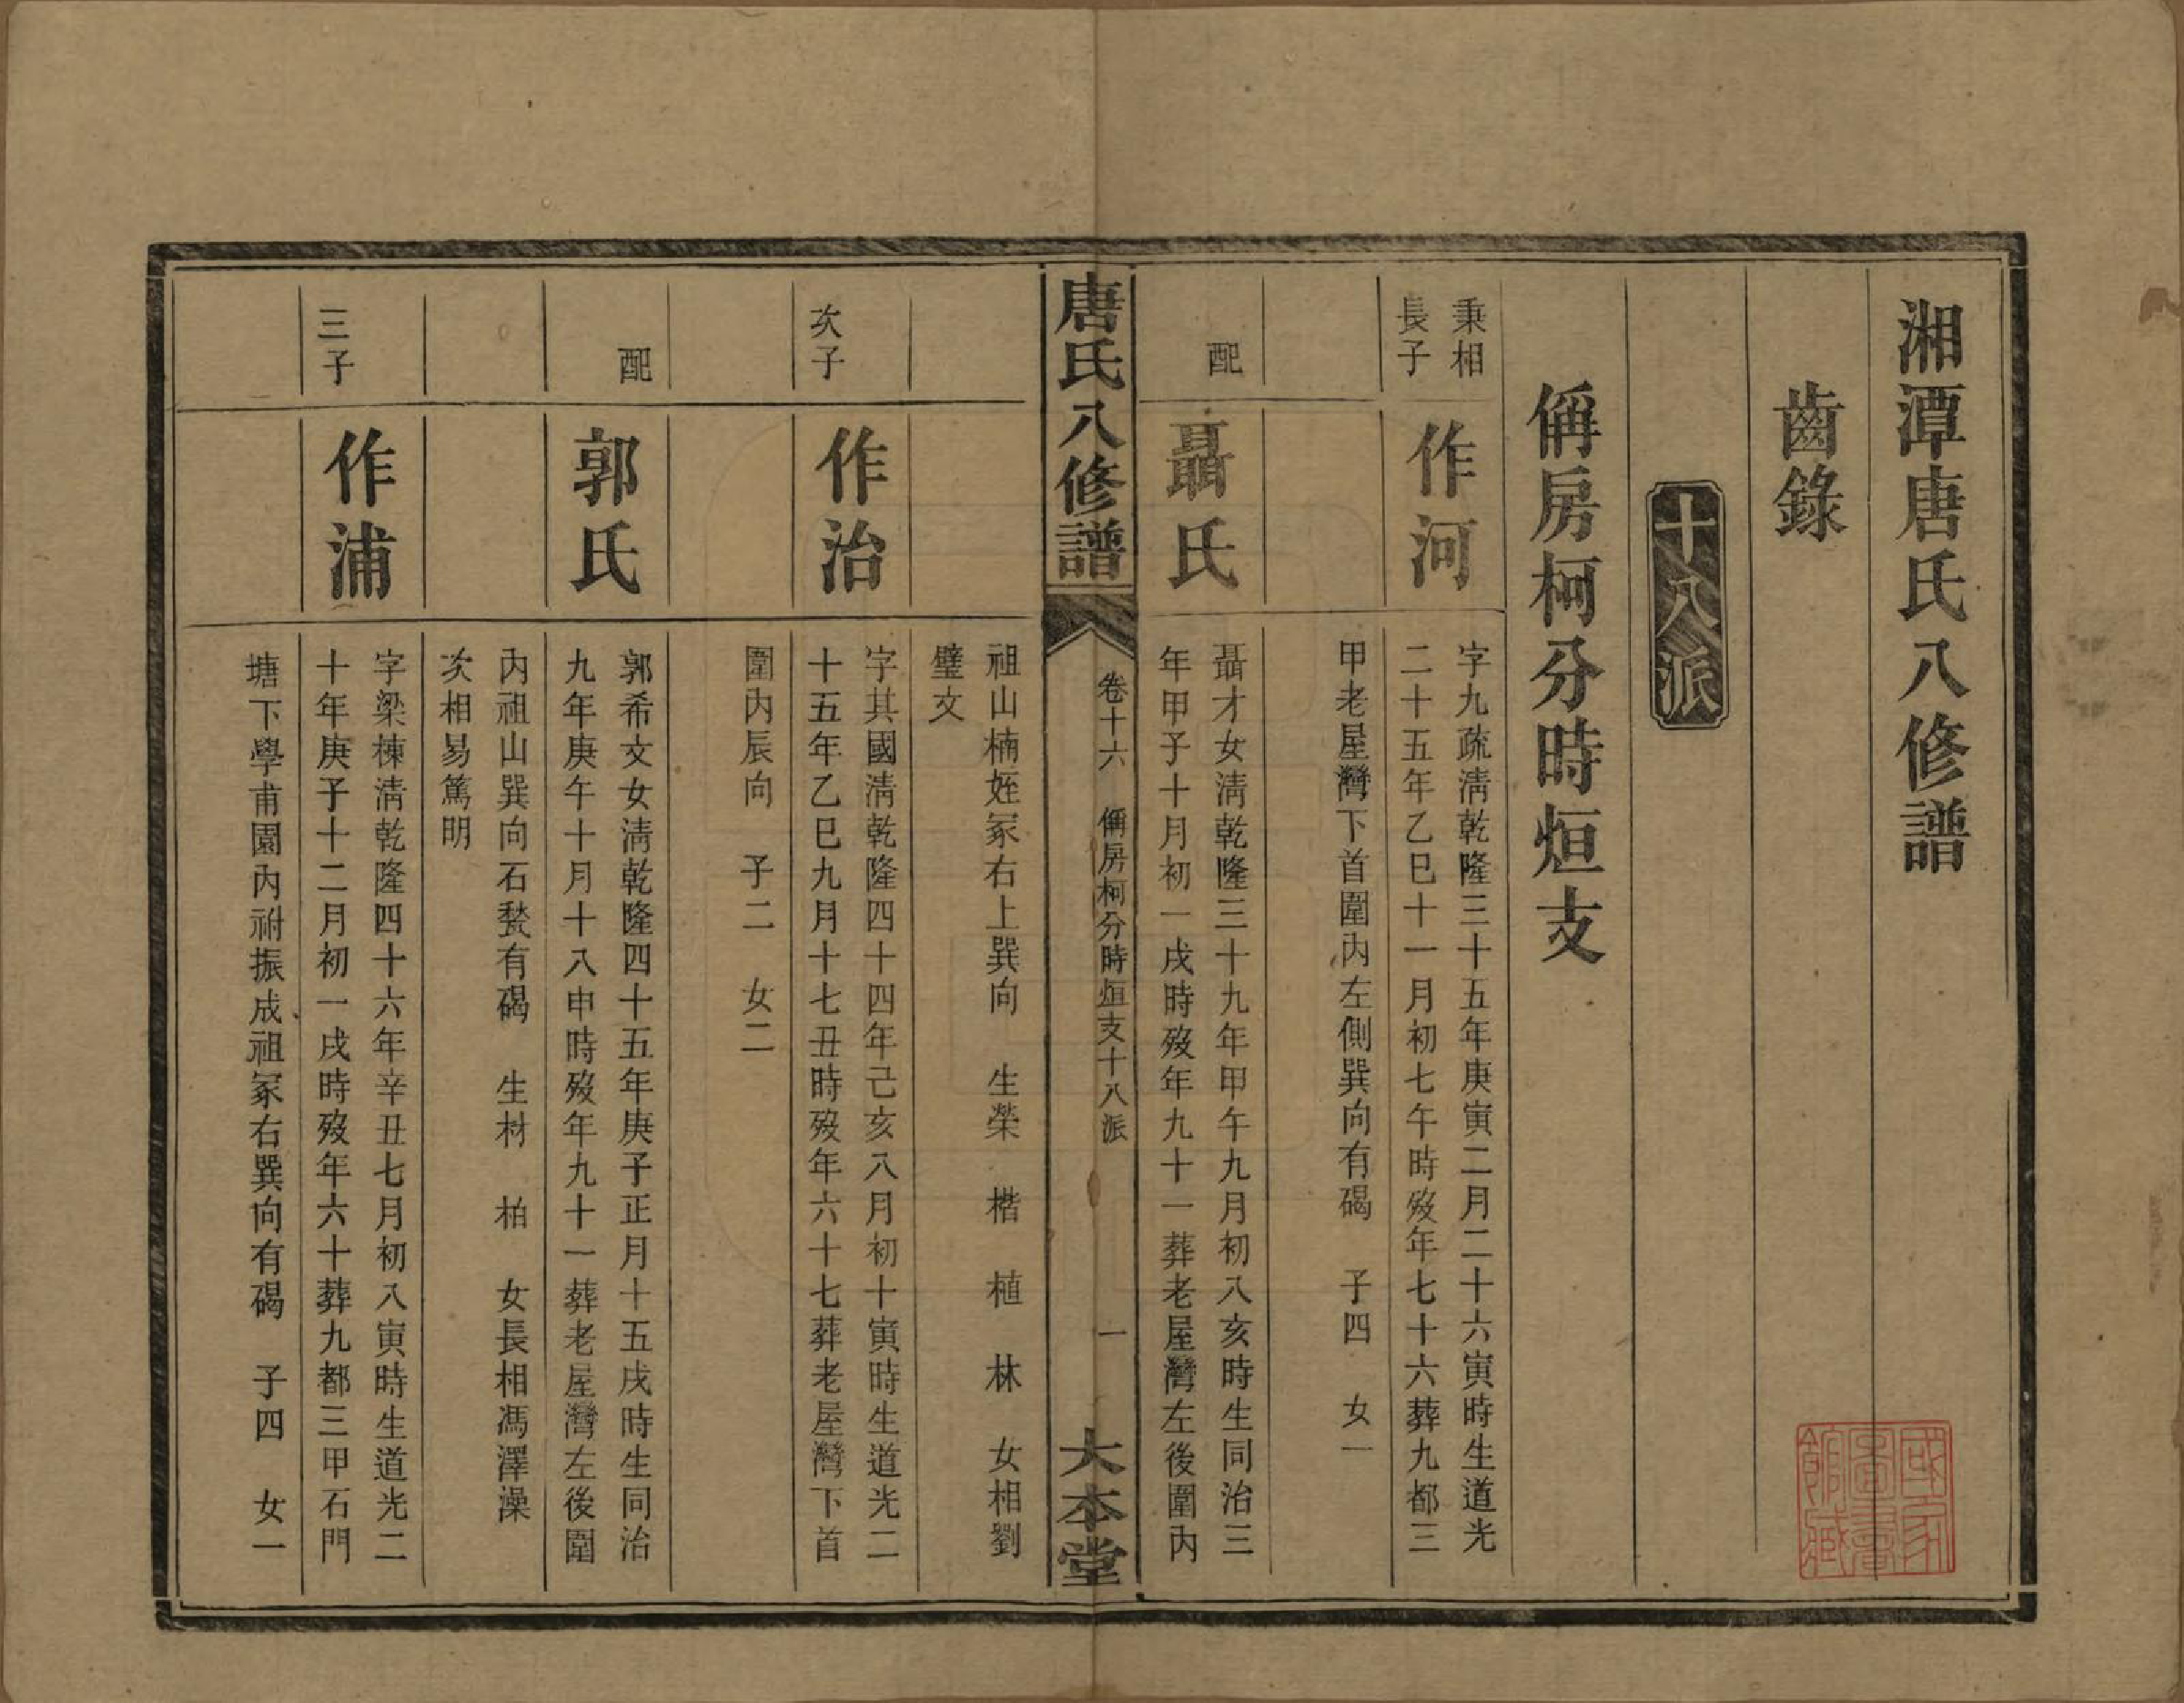 湘潭唐氏八修譜
齒錄
十八派
偁房柯分時烜支
秉相
長子
作河
字九疏淸乾隆三十五年庚寅二月二十六寅時生道光
二十五年乙巳十一月初七午時歿年七十六葬九都三
甲老屋灣下首圍內左側巽向有碣　子四　女一
配
聶氏
聶才女淸乾隆三十九年甲午九月初八亥時生同治三
年甲子十月初一戌時歿年九十一葬老屋灣左後圍內
唐氏八修譜
卷十六　偁房柯分時烜支十八派
一
大本堂
祖山楠姪冢右上巽向　生榮　楷　植　林　女相劉
璧文
次子
作治
字其國淸乾隆四十四年己亥八月初十寅時生道光二
十五年乙巳九月十七丑時歿年六十七葬老屋灣下首
圍內辰向　子二　女二
配
郭氏
郭希文女淸乾隆四十五年庚子正月十五戌時生同治
九年庚午十月十八申時歿年九十一葬老屋灣左後圍
內祖山巽向石甃有碣　生材　柏　女長相馮澤澡
次相易篤明
三子
作浦
字梁棟淸乾隆四十六年辛丑七月初八寅時生道光二
十年庚子十二月初一戌時歿年六十葬九都三甲石門
塘下學甫園內祔振成祖冢右巽向有碣　子四　女一
國家
圖書
館藏